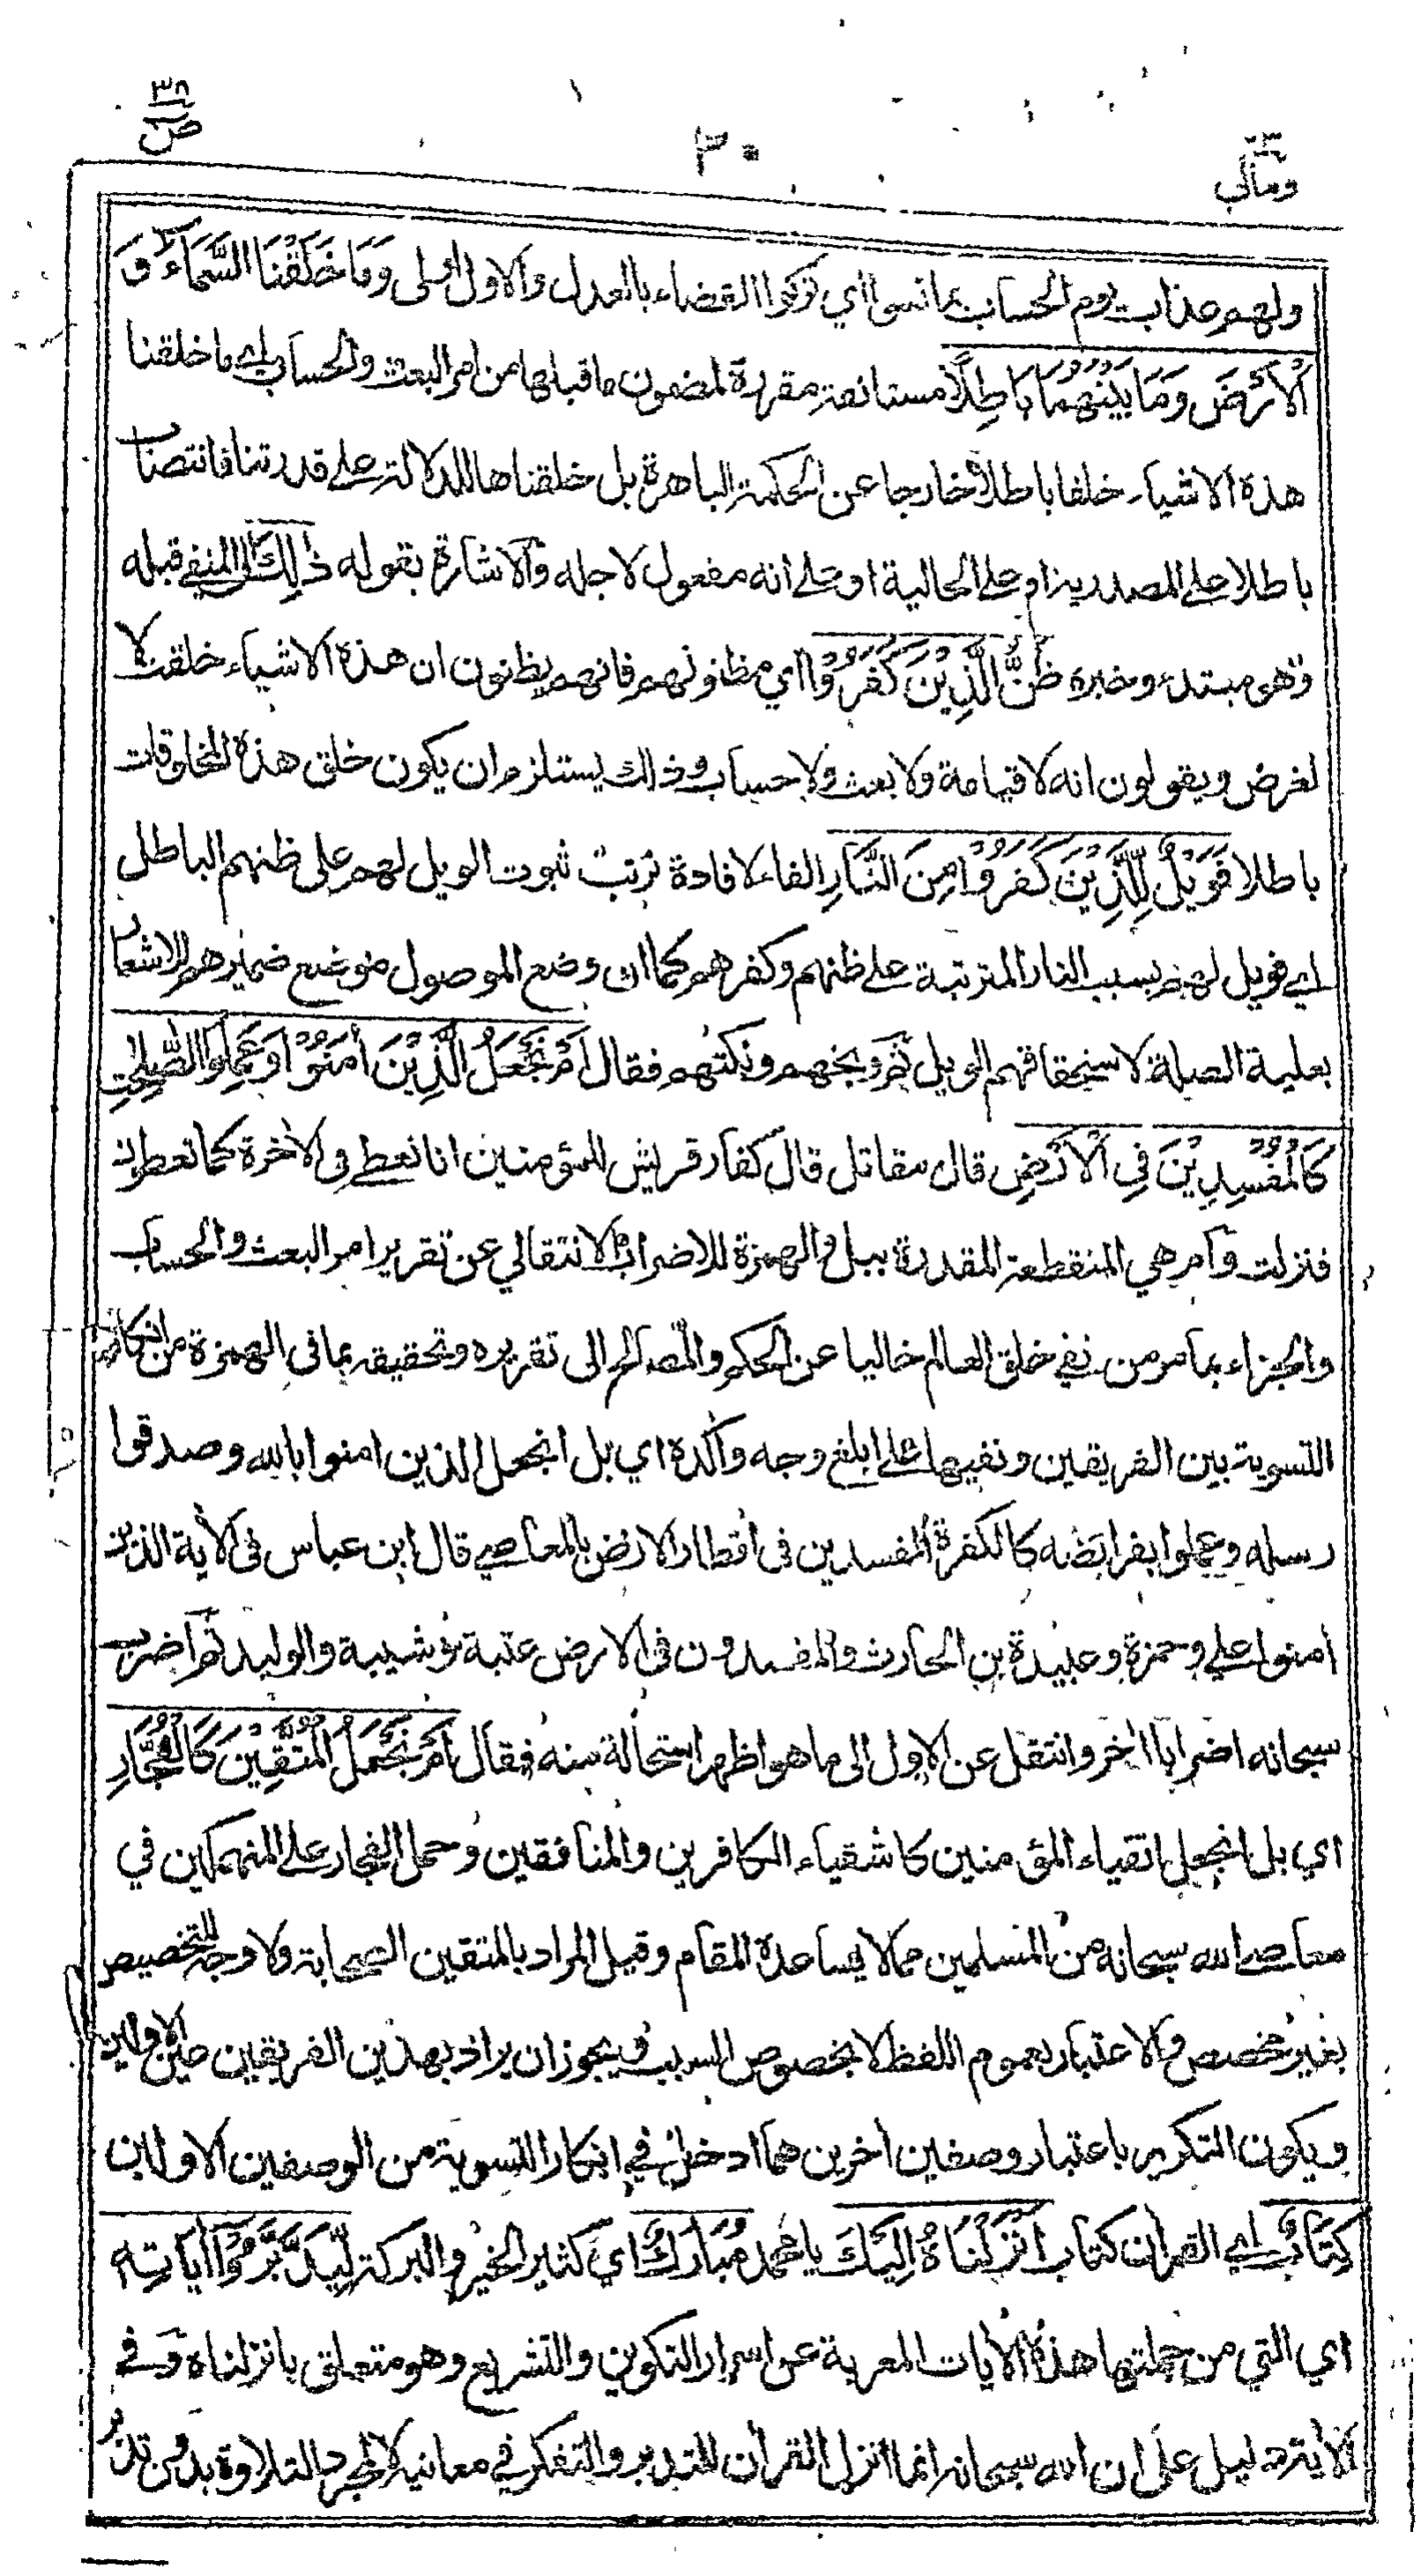 ٣٨
ص
٣٠
ومالي
٢٣
ولهم عذاب يوم الحساب بما نسوا اي تركوا القضاء بالعدل والاول اولى وَمَا خَلَقْنَا السَّمَاءَ وَ
الْاَرْضَ وَمَا بَيْنَهُمَا بَاطِلًا مستانفة مقررة لمضمون ما قبلها من امر البعث والحساب اي ما خلقنا
هذه الاشياء خلقا باطلا خارجا عن الحكمة الباهرة بل خلقناها للدلالة على قدرتنا فانتصاب
باطلا على المصدرية او على الحالية او على انه مفعول لاجله والاشارة بقوله ذٰلِكَ الى المنفي قبله
وهو مبتدء وخبره ظَنُّ الَّذِيْنَ كَفَرُوْا اي مظنونهم فانهم يظنون ان هذه الاشياء خلقت لا
لغرض ويقولون انه لا قيامة ولا بعث ولا حساب وذلك يستلزم ان يكون خلق هذه المخلوقات
باطلا فَوَيْلٌ لِلَّذِيْنَ كَفَرُوْا مِنَ النَّارِ الفاء لافادة ترتب ثبوت الويل لهم على ظنهم الباطل
اي فويل لهم بسبب النار المترتبة على ظنهم وكفرهم كما ان وضع الموصول موضع ضميرهم للاشعار
بعلية الصلة لاستحقاقهم الويل ثم وبخهم وبكتهم فقال اَمْ نَجْعَلُ الَّذِيْنَ اٰمَنُوْا وَعَمِلُوا الصّٰلِحٰتِ
كَالْمُفْسِدِيْنَ فِي الْاَرْضِ قال مقاتل قال كفار قريش للمؤمنين انا نعطى في الاخرة كما تعطون
فنزلت وام هي المنقطعة المقدرة ببل والهمزة للاضراب الانتقالي عن تقرير امر البعث والحساب
والجزاء بما مر من نفي خلق العالم خاليا عن الحكم والمصالح الى تقريره وتحقيقه بما في الهمزة من انكار
التسوية بين الفريقين ونفيها على ابلغ وجه واكده اي بل انجعل الذين امنوا بالله وصدقوا
رسله وعملوا بفرائضه كالكفرة المفسدين في اقطار الارض بالمعاصي قال ابن عباس في الاية الذين
امنوا علي وحمزة وعبيدة بن الحارث والمفسدون في الارض عتبة وشيبة والوليد ثم اضرب
سبحانه اضرابا اخر وانتقل عن الاول الى ما هو اظهر استحالة منه فقال اَمْ نَجْعَلُ الْمُتَّقِيْنَ كَالْفُجَّارِ
اي بل انجعل اتقياء المؤمنين كاشقياء الكافرين والمنافقين وحمل الفجار على المنهمكين في
معاصي الله سبحانه من المسلمين مما لا يساعده المقام وقيل المراد بالمتقين الصحابة ولا وجه للتخصيص
بغير مخصص والاعتبار بعموم اللفظ لا بخصوص السبب ويجوز ان يراد بهذين الفريقين عين الاولين
ويكون التكرير باعتبار وصفين اخرين هما ادخل في انكار التسوية من الوصفين الاولين
كِتَابٌ اي القران كتاب اَنْزَلْنَاهُ اِلَيْكَ يا محمد مُبَارَكٌ اي كثير الخير والبركة لِيَدَّبَّرُوْا اٰيَاتِهِ
اي التي من جملتها هذه الايات المعربة عن اسرار التكوين والتشريع وهو متعلق بانزلناه وفي
الاية دليل على ان الله سبحانه انما انزل القران للتدبر والتفكر في معانيه لا لمجرد التلاوة بدون تدبر